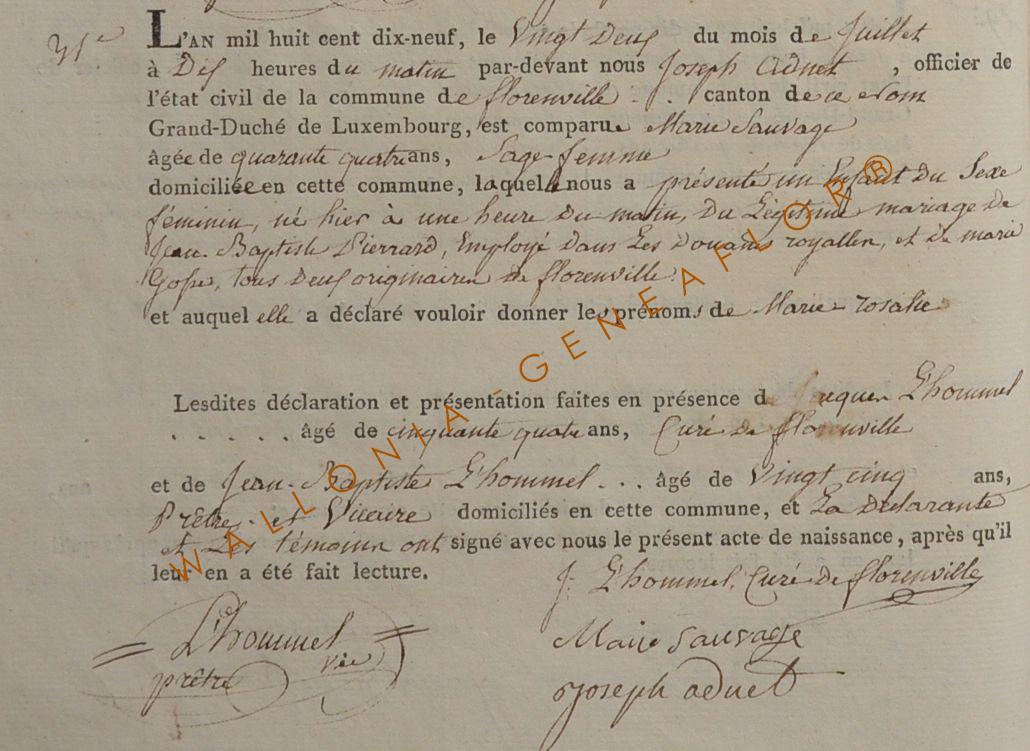 31e
L'AN mil huit cent dix-neuf, le Vingt Deux du mois de Juillet
à Dix heures du matin par-devant nous Joseph Adnet , officier de
l'état civil de la commune de florenville . . canton de ce nom
Grand-Duché de Luxembourg, est comparue Marie Sauvage
âgée de quarante quatre ans, Sage-femme
domiciliée en cette commune, laquelle nous a présenté un Enfant Du Sexe
féminin, né hier à une heure Du matin, Du Légitime mariage De
Jean-Baptiste Pierrard, Employé Dans Les Douanes royalles, et De marie
Gofse, tous Deux originaires De florenville
et auquel elle a déclaré vouloir donner les prénoms de Marie rosalie
Lesdites déclaration et présentation faites en présence de Jacques L'hommel
. . . . . . âgé de cinquante quatre ans, Curé De florenville
et de Jean-Baptiste L'hommel . . . âgé de Vingt cinq ans,
Prêtre et Vicaire domiciliés en cette commune, et La Déclarante
et Les témoins ont signé avec nous le présent acte de naissance, après qu'il
leur en a été fait lecture.
J. L'hommel, Curé De florenville
L'hommel
prêtre vic
Marie Sauvage
Joseph adnet
WALLONIA-GENEAFLOR®